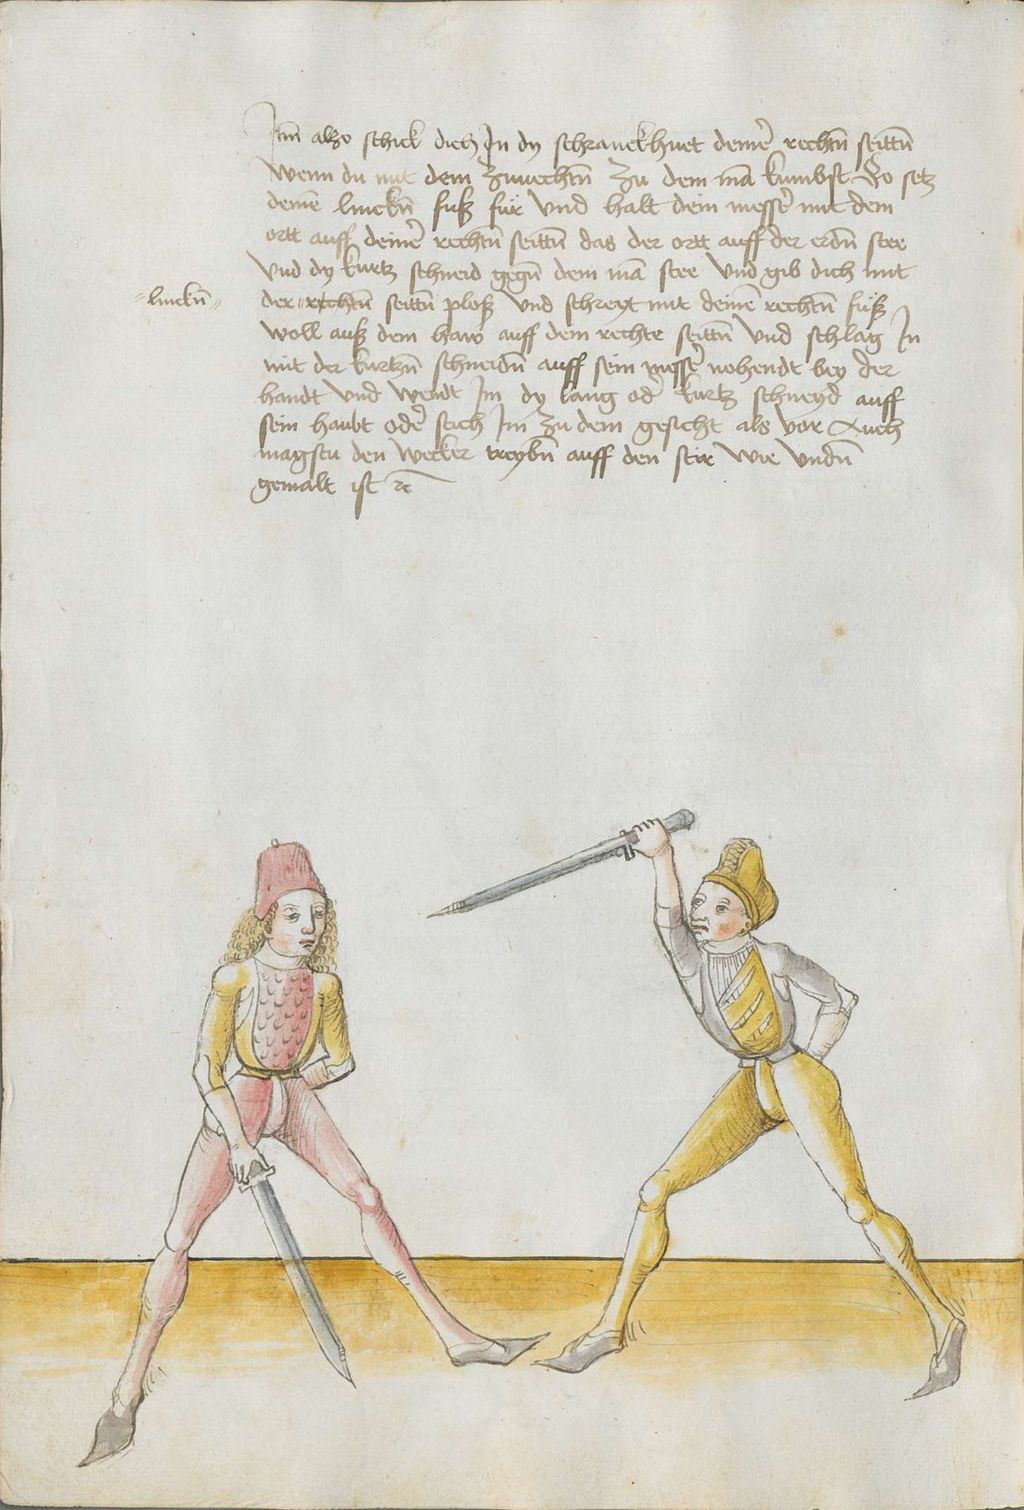 Itm̃ also schick dich In dy schranckhuet deine᷑ rechtñ seittñ
wenn du mit dem Zuuechtñ Zu dem mã kumbst So setz
deinẽ linckñ fuß für vnd halt dein messe᷑ mit dem
ortt auff deine᷑ rechtñ seittñ das der ortt auff der erdñ stee
vnd dy kurtz schneid gegñ dem mã stee vnd gib dich mit
linckñ
der rechtñ seittñ ploß vnd schreyt mit deinẽ rechtñ fuß
woll auß dem haw auff dem rechte seittñ vnd schlag In
mit der kurtzñ schneidñ auff sein messe᷑ nohendt bey der
handt vnd wendt Im dy lang od᷑ kurtz schneyd auff
sein haubt ode᷑ stich Im Zu dem gesicht als vor Auch
magstu den wecker treybñ auff den stir wie vndñ
gemalt ist ꝛc